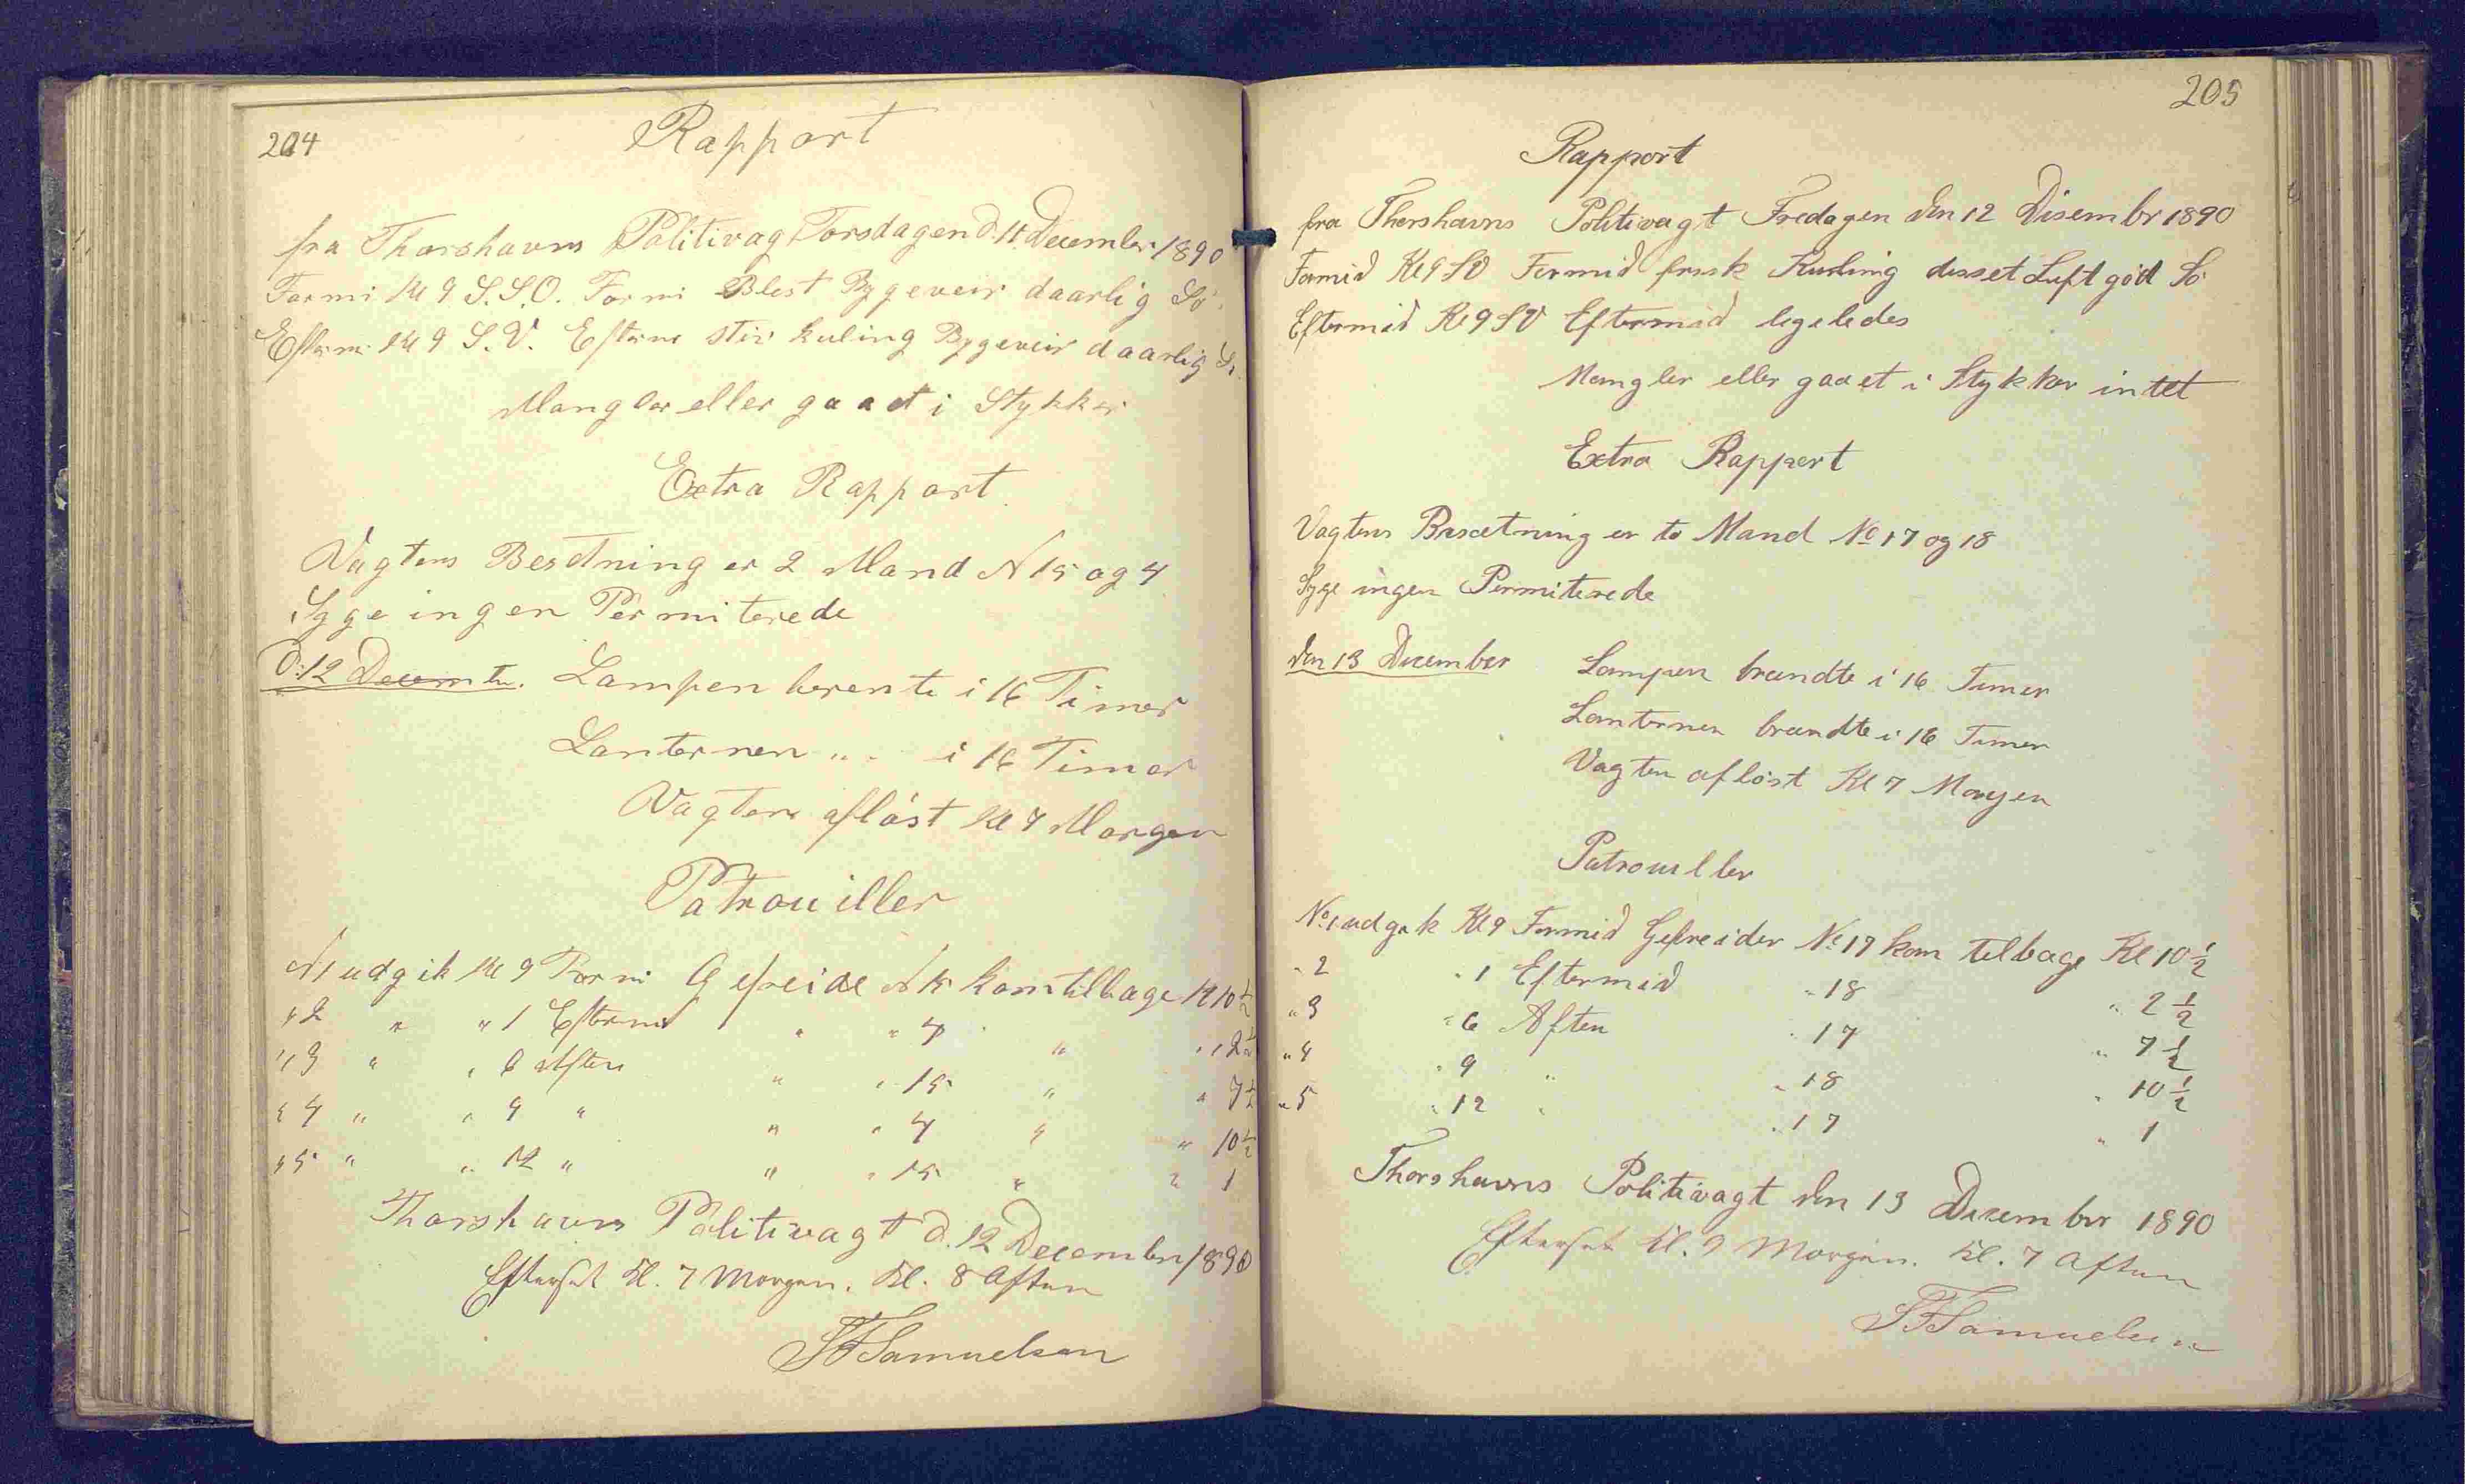 204
Rapport
fra Thorshavns Politivagt Torsdagen D. 11 December 1890
Formi Kl 9 S.S.O. Formi Blest Bygeveir daarlig Sö
Efterm Kl 9 S.V. Efterm stiv kuling Bygeveir daarlig S.
Mangler eller gaaet i Stykker
Extra Rapport
Vagtens Besetning er 2 Mand N 15 og 4
Syge ingen Permiterede
D: 12 Decemb. Lampen brente i 16 Timer
Lanternen " " i 16 Timer
Vagten aflöst Kl 7 Morgen
Patrouiller
N 1 udgik Kl 9 Formi Gefreide N 15 kom tilbage Kl 10 1/2
" 2 " " 1 Efterm " " 4 " " 2 1/2
" 3 " " 6 Aften " " 15 " " 7 1/2
" 4 " " 9 " " " 4 " " 10 1/2
" 5 " " 12 " " " 15 " " 1
Thorshavns Politivagt D. 12 December 1890
Efterset Kl. 7 Morgen. Kl. 8 Aften
SFSamuelsen
205
Rapport
fra Thorshavns Politivagt Fredagen den 12 Disembr 1890
Formid Kl 9 SV Formid frisk Kuling disset Luft göd Sö
Eftermid Kl 9 SV Eftermid ligeledes
Mangler eller gaaet i Stykker intet
Extra Rappert
Vagtens Besætning er to Mand No 17 og 18
Syge ingen Permiterede
den 13 December Lampen brændte i 16 Timer
Lanternen brændte i 16 Timer
Vagten aflöst Kl 7 Morgen
Patrouiller
No 1 udgik Kl 9 Formid Gefreider No 17 kom tilbage Kl 10 1/2
" 2 " 1 Eftermid " 18 " 2 1/2
" 3 " 6 Aften " 17 " 7 1/2
" 4 " 9 " " 18 " 10 1/2
" 5 " 12 " " 17 " 1
Thorshavns Politivagt den 13 Desember 1890
Efterset Kl. 9 Morgen. Kl. 7 Aften
SFSamuelsen